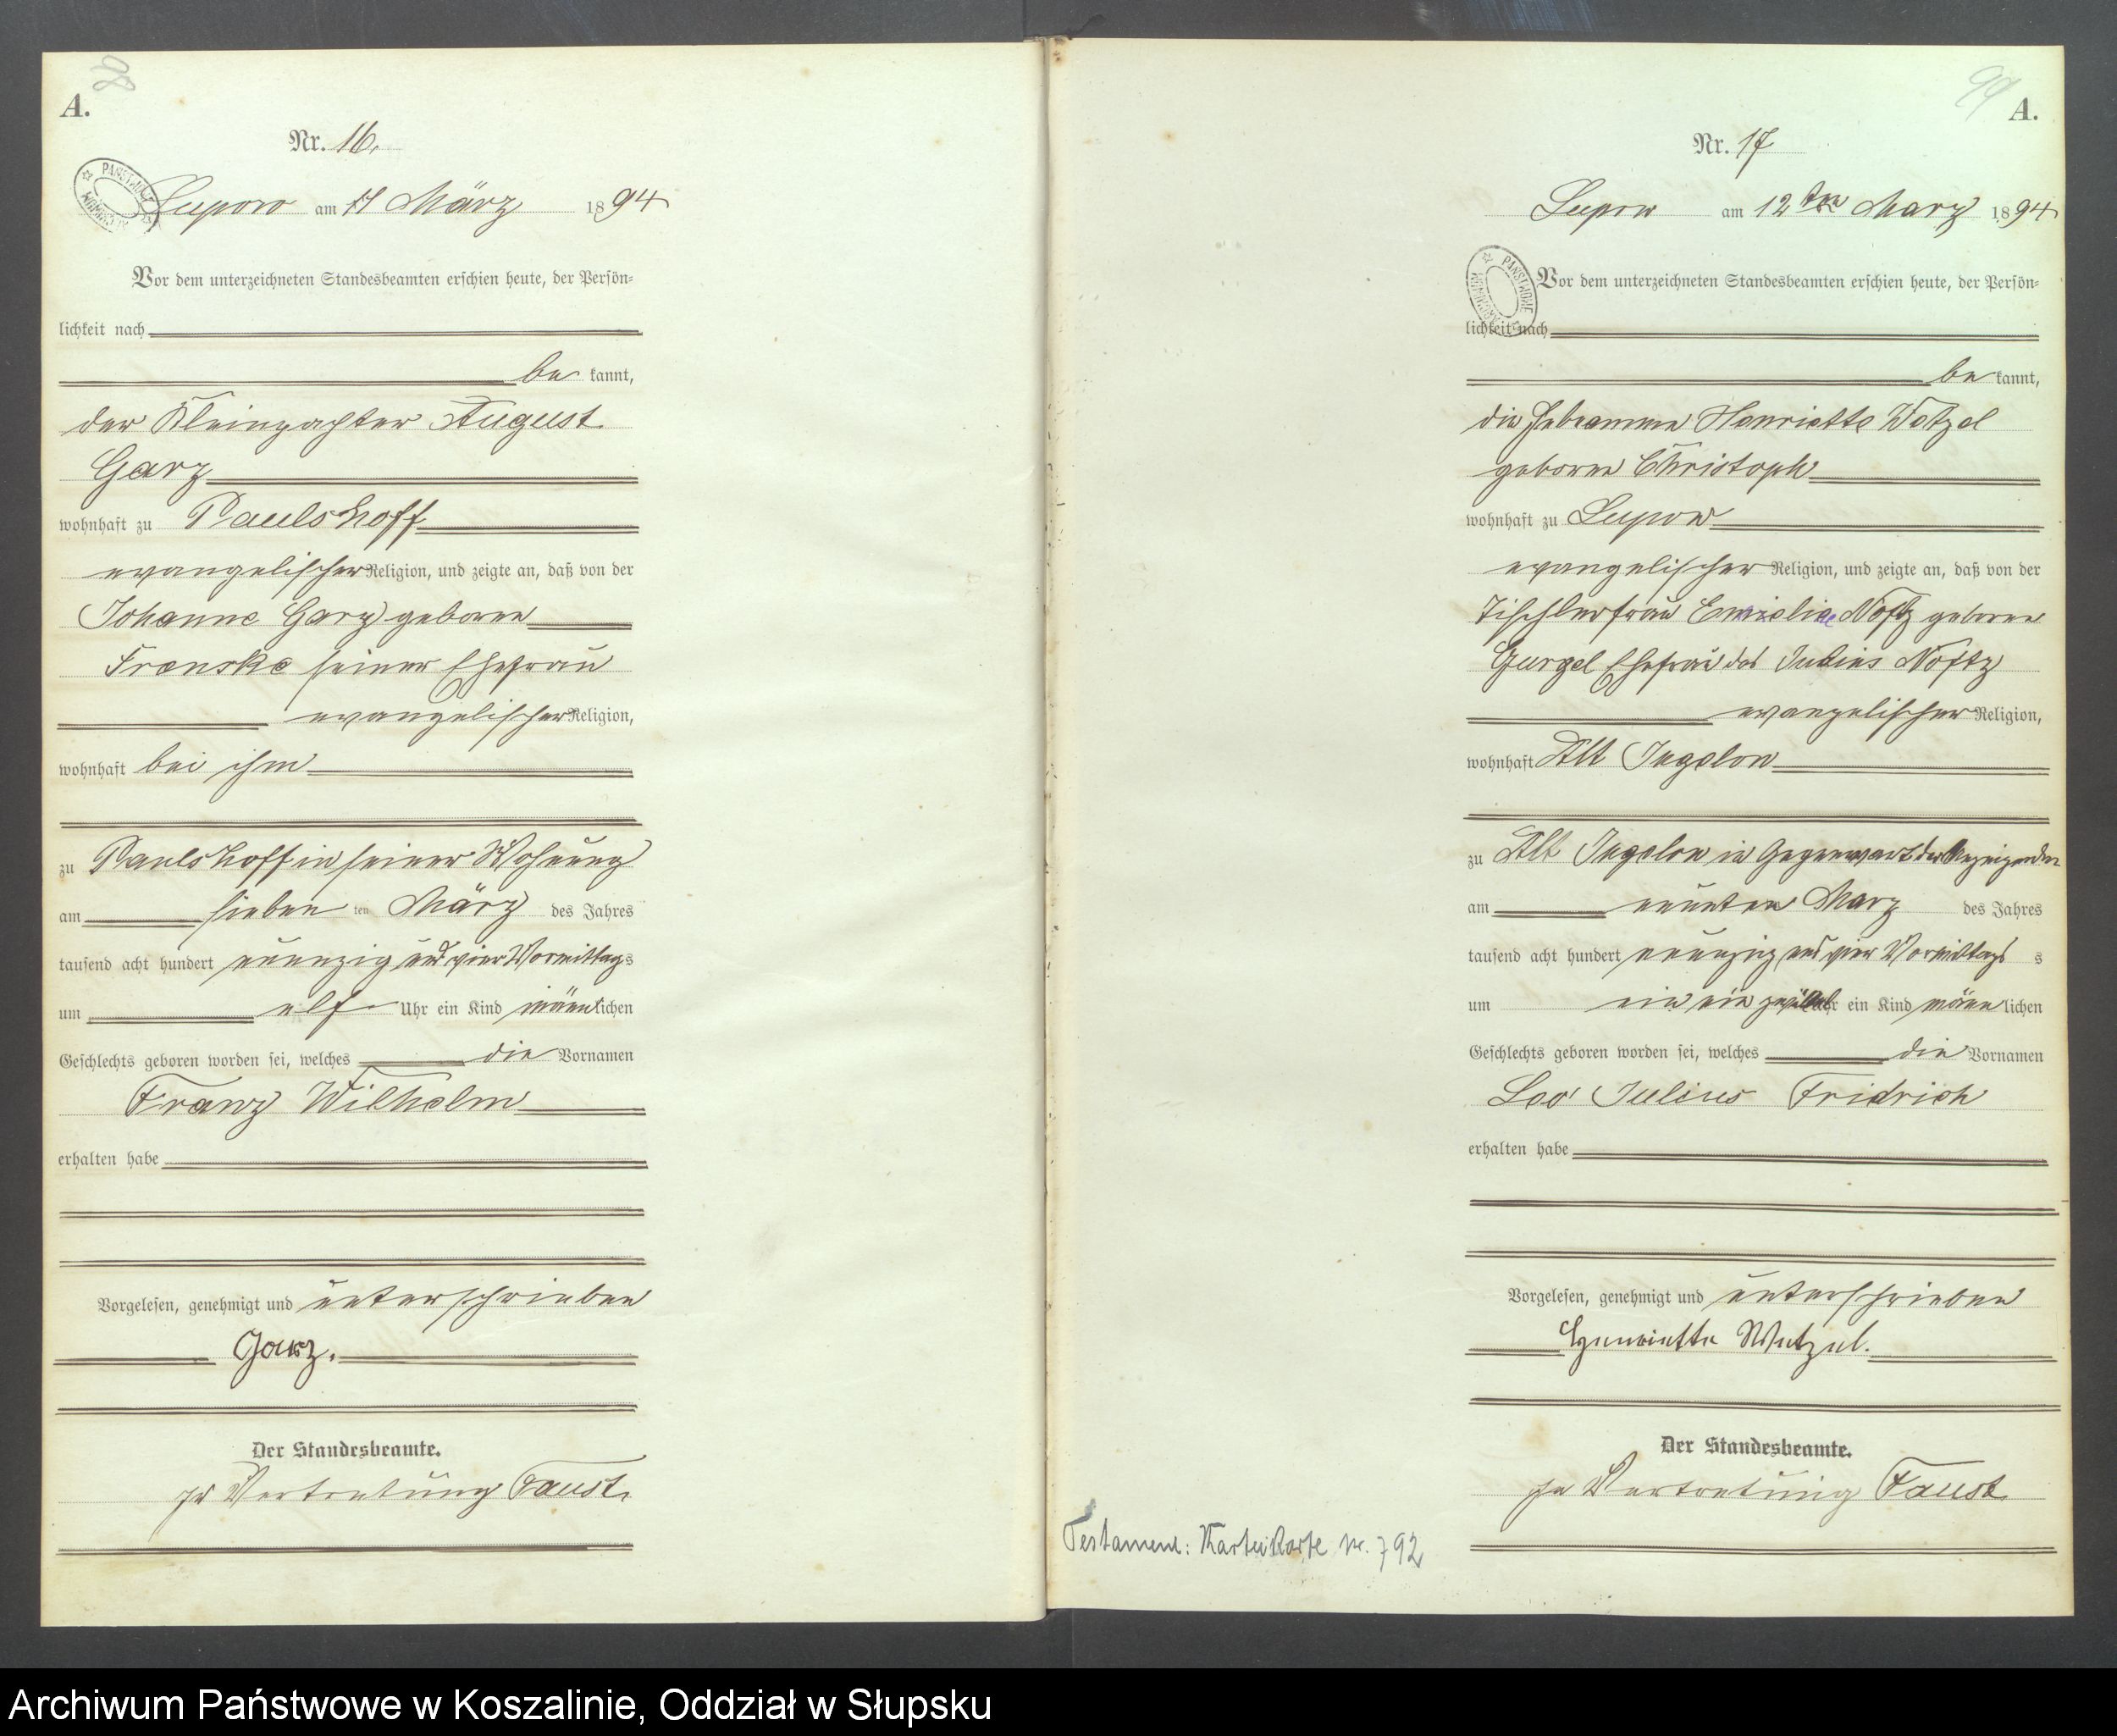 98
A.
Nr. 16.
Lupow am 11 März 1894
Vor dem unterzeichneten Standesbeamten erschien heute, der Persön-
lichkeit nach
be kannt,
der Kleinpachter August
Garz
wohnhaft zu Paulshoff
evangelischer Religion, und zeigte an, daß von der
Johanne Garz geboren
Franske seiner Ehefrau
evangelischer Religion,
wohnhaft bei ihm
zu Paulshoff in seiner Wohnung
am sieben ten März des Jahres
tausend acht hundert neunzig und vier Vormittags
um elf Uhr ein Kind männlichen
Geschlechts geboren worden sei, welches die Vornamen
Franz Wilhelm
erhalten habe
Vorgelesen, genehmigt und unterschrieben
Garz.
Der Standesbeamte.
In Vertretung Faust.
99
A.
Nr. 17
Lupow am 12ten Marz 1894
PAŃSTWOWE
Vor dem unterzeichneten Standesbeamten erschien heute, der Persön-
lichkeit nach
be kannt,
die Hebeamme Henriette Wetzel
geboren Christoph
wohnhaft zu Lupow
evangelischer Religion, und zeigte an, daß von der
Tischlerfrau Emielie Nöftz geboren
Gurgel Ehefrau des Julius Nöftz
evangelischer Religion,
wohnhaft Alt Jugelow
zu Alt Jugelow in Gegenwart der Anzeigenden
am neunten Marz des Jahres
tausend acht hundert neunzig und vier Vormittags s
um ein ein Uhr ein Kind männ lichen
Geschlechts geboren worden sei, welches die Vornamen
Leo Julius Fridrich
erhalten habe
Vorgelesen, genehmigt und unterschrieben
Henriette Wetzel.
Der Standesbeamte.
In Vertretung Faust.
Testament: Karteikarte Nr. 792
Archiwum Państwowe w Koszalinie, Oddział w Słupsku